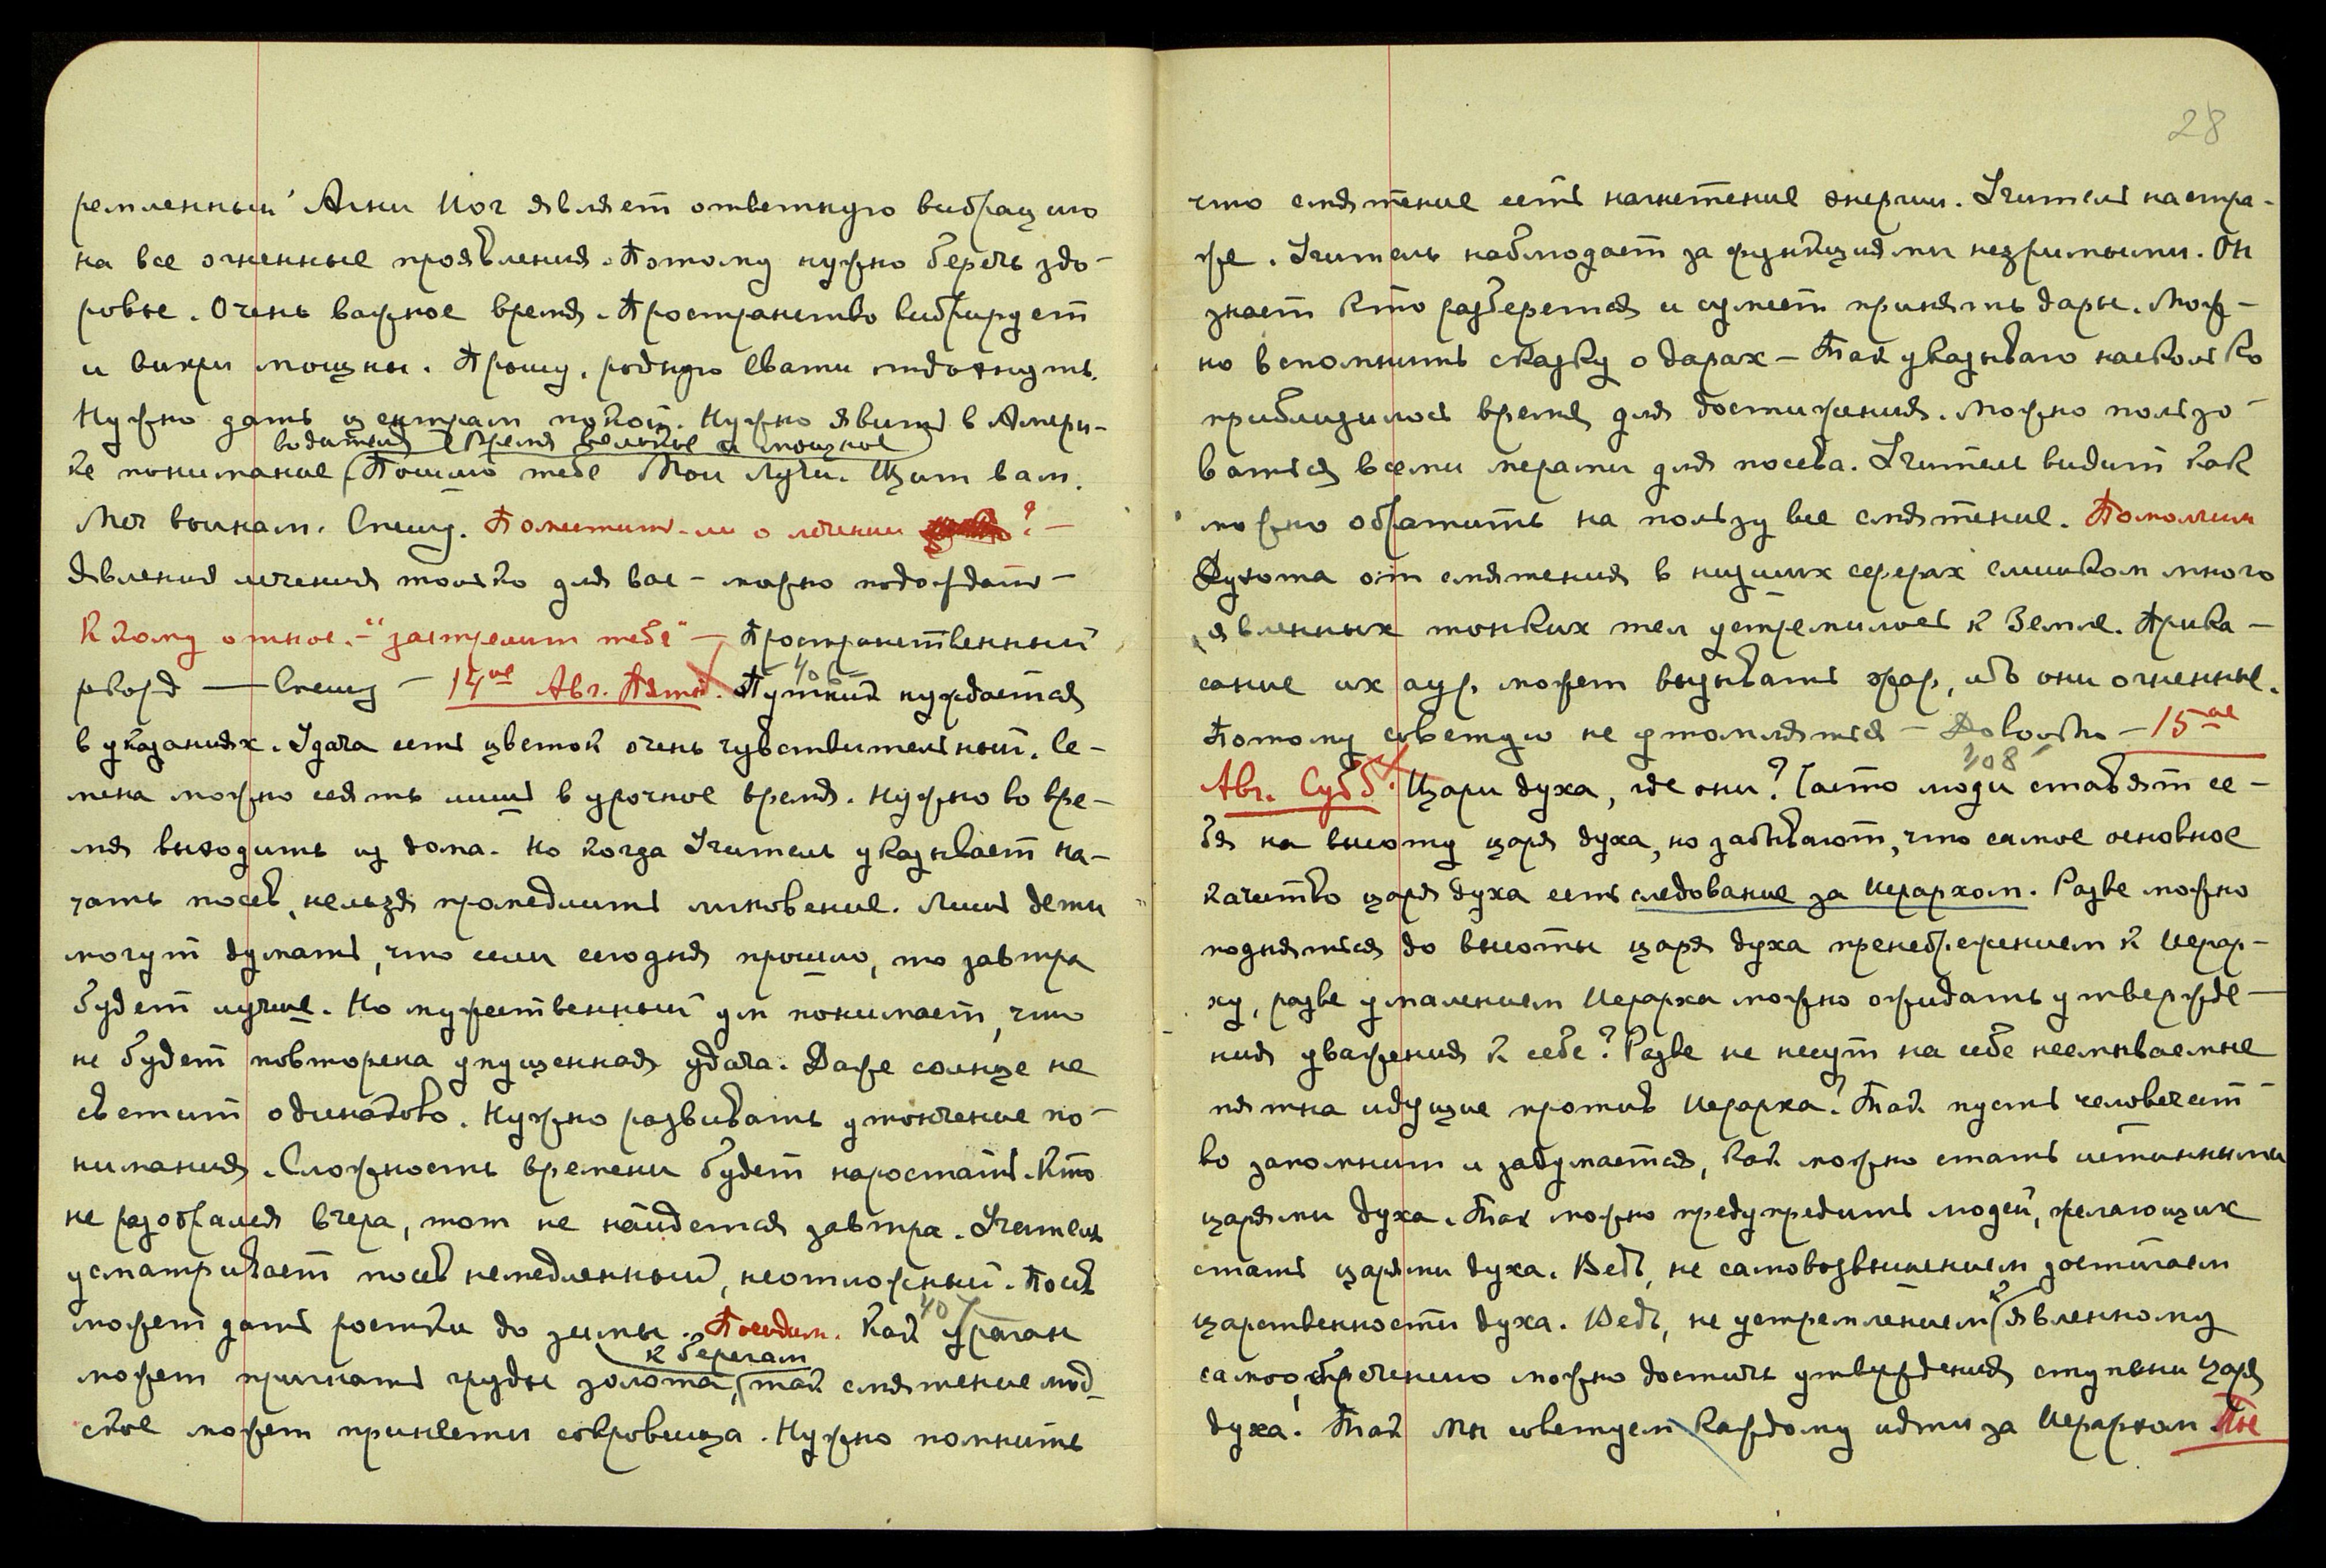 ремленный Агни Йог являет ответную вибрацию
на все огненные проявления. Потому нужно беречь здо-
ровье. Очень важное время. Пространство вибрирует
и вихри мощны. Прошу, родную Свати отдохнуть.
Нужно дать центрам покой. Нужно явить в Амери-
водителя Время великое и мощное
ке понимание Пошлю тебе Мои Лучи. Щит вам.
Меч воинам. Спешу. Поместит-ли о лечении ? —
Явления лечения только для вас — можно подождать —
К кому относ. — "застрелит тебя" — Пространственный
рекорд — Спешу — 14ое Авг. Пятн. Путник нуждается
406
в указаниях. Удача есть цветок очень чувствительный. Се-
мена можно сеять лишь в урочное время. Нужно во вре-
мя выходить из дома. Но когда Учитель указывает на-
чать посев, нельзя промедлить мгновение. Лишь дети
могут думать, что если сегодня прошло, то завтра
будет лучше. Но мужественный ум понимает, что
не будет повторена упущенная удача. Даже солнце не
светит одинаково. Нужно развивать утончение по-
нимания. Сложность времени будет наростать. Кто
не разобрался вчера, тот не найдется завтра. Учитель
усматривает посев немедленный, неотложный. Посев
может дать ростки до зимы. Посидим. Как ураган
407
к берегам
может пригнать груды золота, так смятение люд-
ское может принести сокровища. Нужно помнить
28
что смятение есть нагнетение энергии. Учитель на стра-
же. Учитель наблюдает за функциями незримыми. Он
знает кто разберется и сумеет принять дары. Мож-
но вспомнить сказку о дарах — Так указываю насколько
приблизилось время для достижения. Можно пользо-
ваться всеми мерами для посева. Учитель видит как
можно обратить на пользу все смятение. Помолчим
Духота от смятения в низших сферах слишком много
явленных тонких тел устремилось к Земле. Прика-
сание их аур может вызывать жар, ибо они огненные.
Потому советую не утомляться — Довольно — 15ое
408
Авг. Субб. Цари духа, где они? Часто люди ставят се-
бя на высоту царя духа, но забывают, что самое основное
качество царя духа есть следование за Иерархом. Разве можно
подняться до высоты царя духа пренебрежением к Иерар-
ху, разве умалением Иерарха можно ожидать утвержде-
ния уважения к себе? Разве не несут на себе несмываемые
пятна идущие против Иерарха? Так пусть человечест-
во запомнит и задумается, как можно стать истинными
царями духа. Так можно предупредить людей, желающих
стать царями духа. Ведь, не самовозвышением достигаем
к
царственности духа. Ведь, не устремлением явленному
самообречению можно достичь утверждения ступени царя
духа! Так Мы советуем каждому идти за Иерархом. Пос